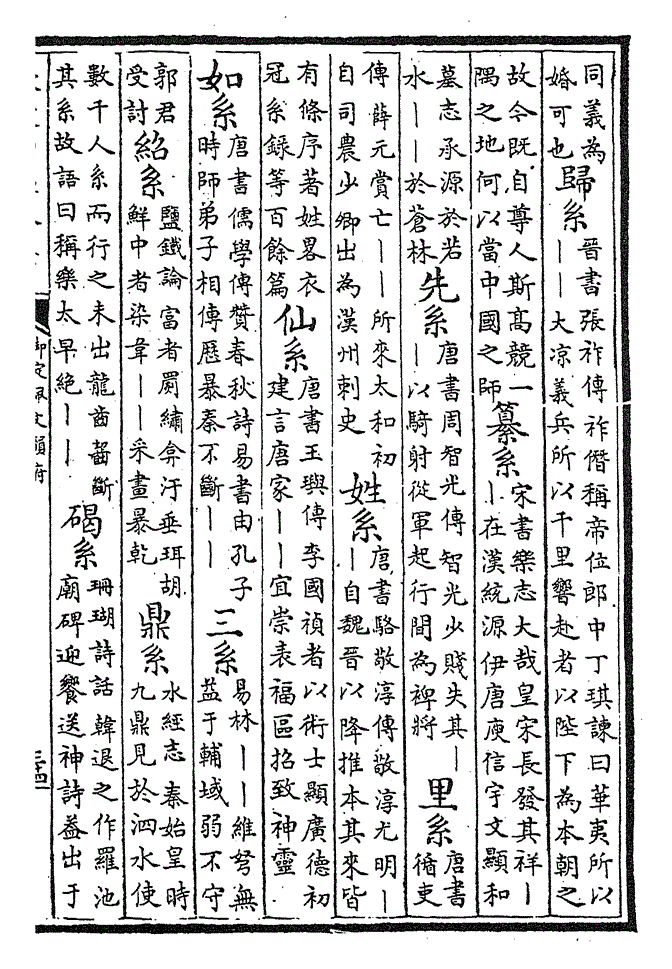 同義為
婚可也
歸系
晉書張祚傳祚僭稱帝位郎中丁琪諫曰華夷所以
｜｜大凉義兵所以千里響赴者以陛下為本朝之
故今既自尊人斯高競一
隅之地何以當中國之師
纂系
宋書樂志大哉皇宋長發其祥｜
｜在漢統源伊唐庾信宇文顯和
墓志承源於若
水｜｜於蒼林
先系
唐書周智光傳智光少賤失其｜
｜以騎射從軍起行間為裨將
里系
唐書
循吏
傳薛元賞亡｜｜所來太和初
自司農少卿出為漢州刺史
姓系
唐書駱敬淳傳敬淳尤明｜
｜自魏晉以降推本其來皆
有條序著姓畧衣
冠系録等百餘篇
仙系
唐書王璵傳李國禎者以術士顯廣德初
建言唐家｜｜宜崇表福區招致神靈
如系
唐書儒學傳贊春秋詩易書由孔子
時師弟子相傳歷暴秦不斷｜｜
三系
易林｜｜維弩無
益于輔域弱不守
郭君
受討
紹系
鹽鐵論富者罽繡弇汙垂珥胡
鮮中者染韋｜｜采畫暴乾
鼎系
水經志秦始皇時
九鼎見於泗水使
數千人系而行之未出龍齒齧斷
其系故語曰稱樂太早絶｜｜
碣系
珊瑚詩話韓退之作羅池
廟碑迎饗送神詩葢出于